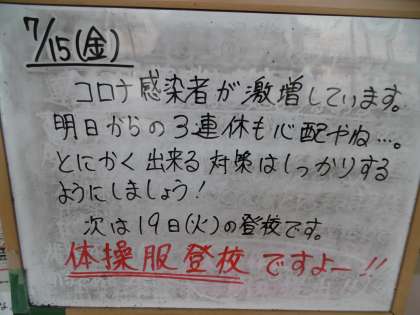 7/15(金)
コロナ感染者が激増しています。
明日からの3連休も心配やね…。
とにかく出来る対策はしっかりする
ようにしましょう!
次は19日(火)の登校です。
体操服登校ですよー!!